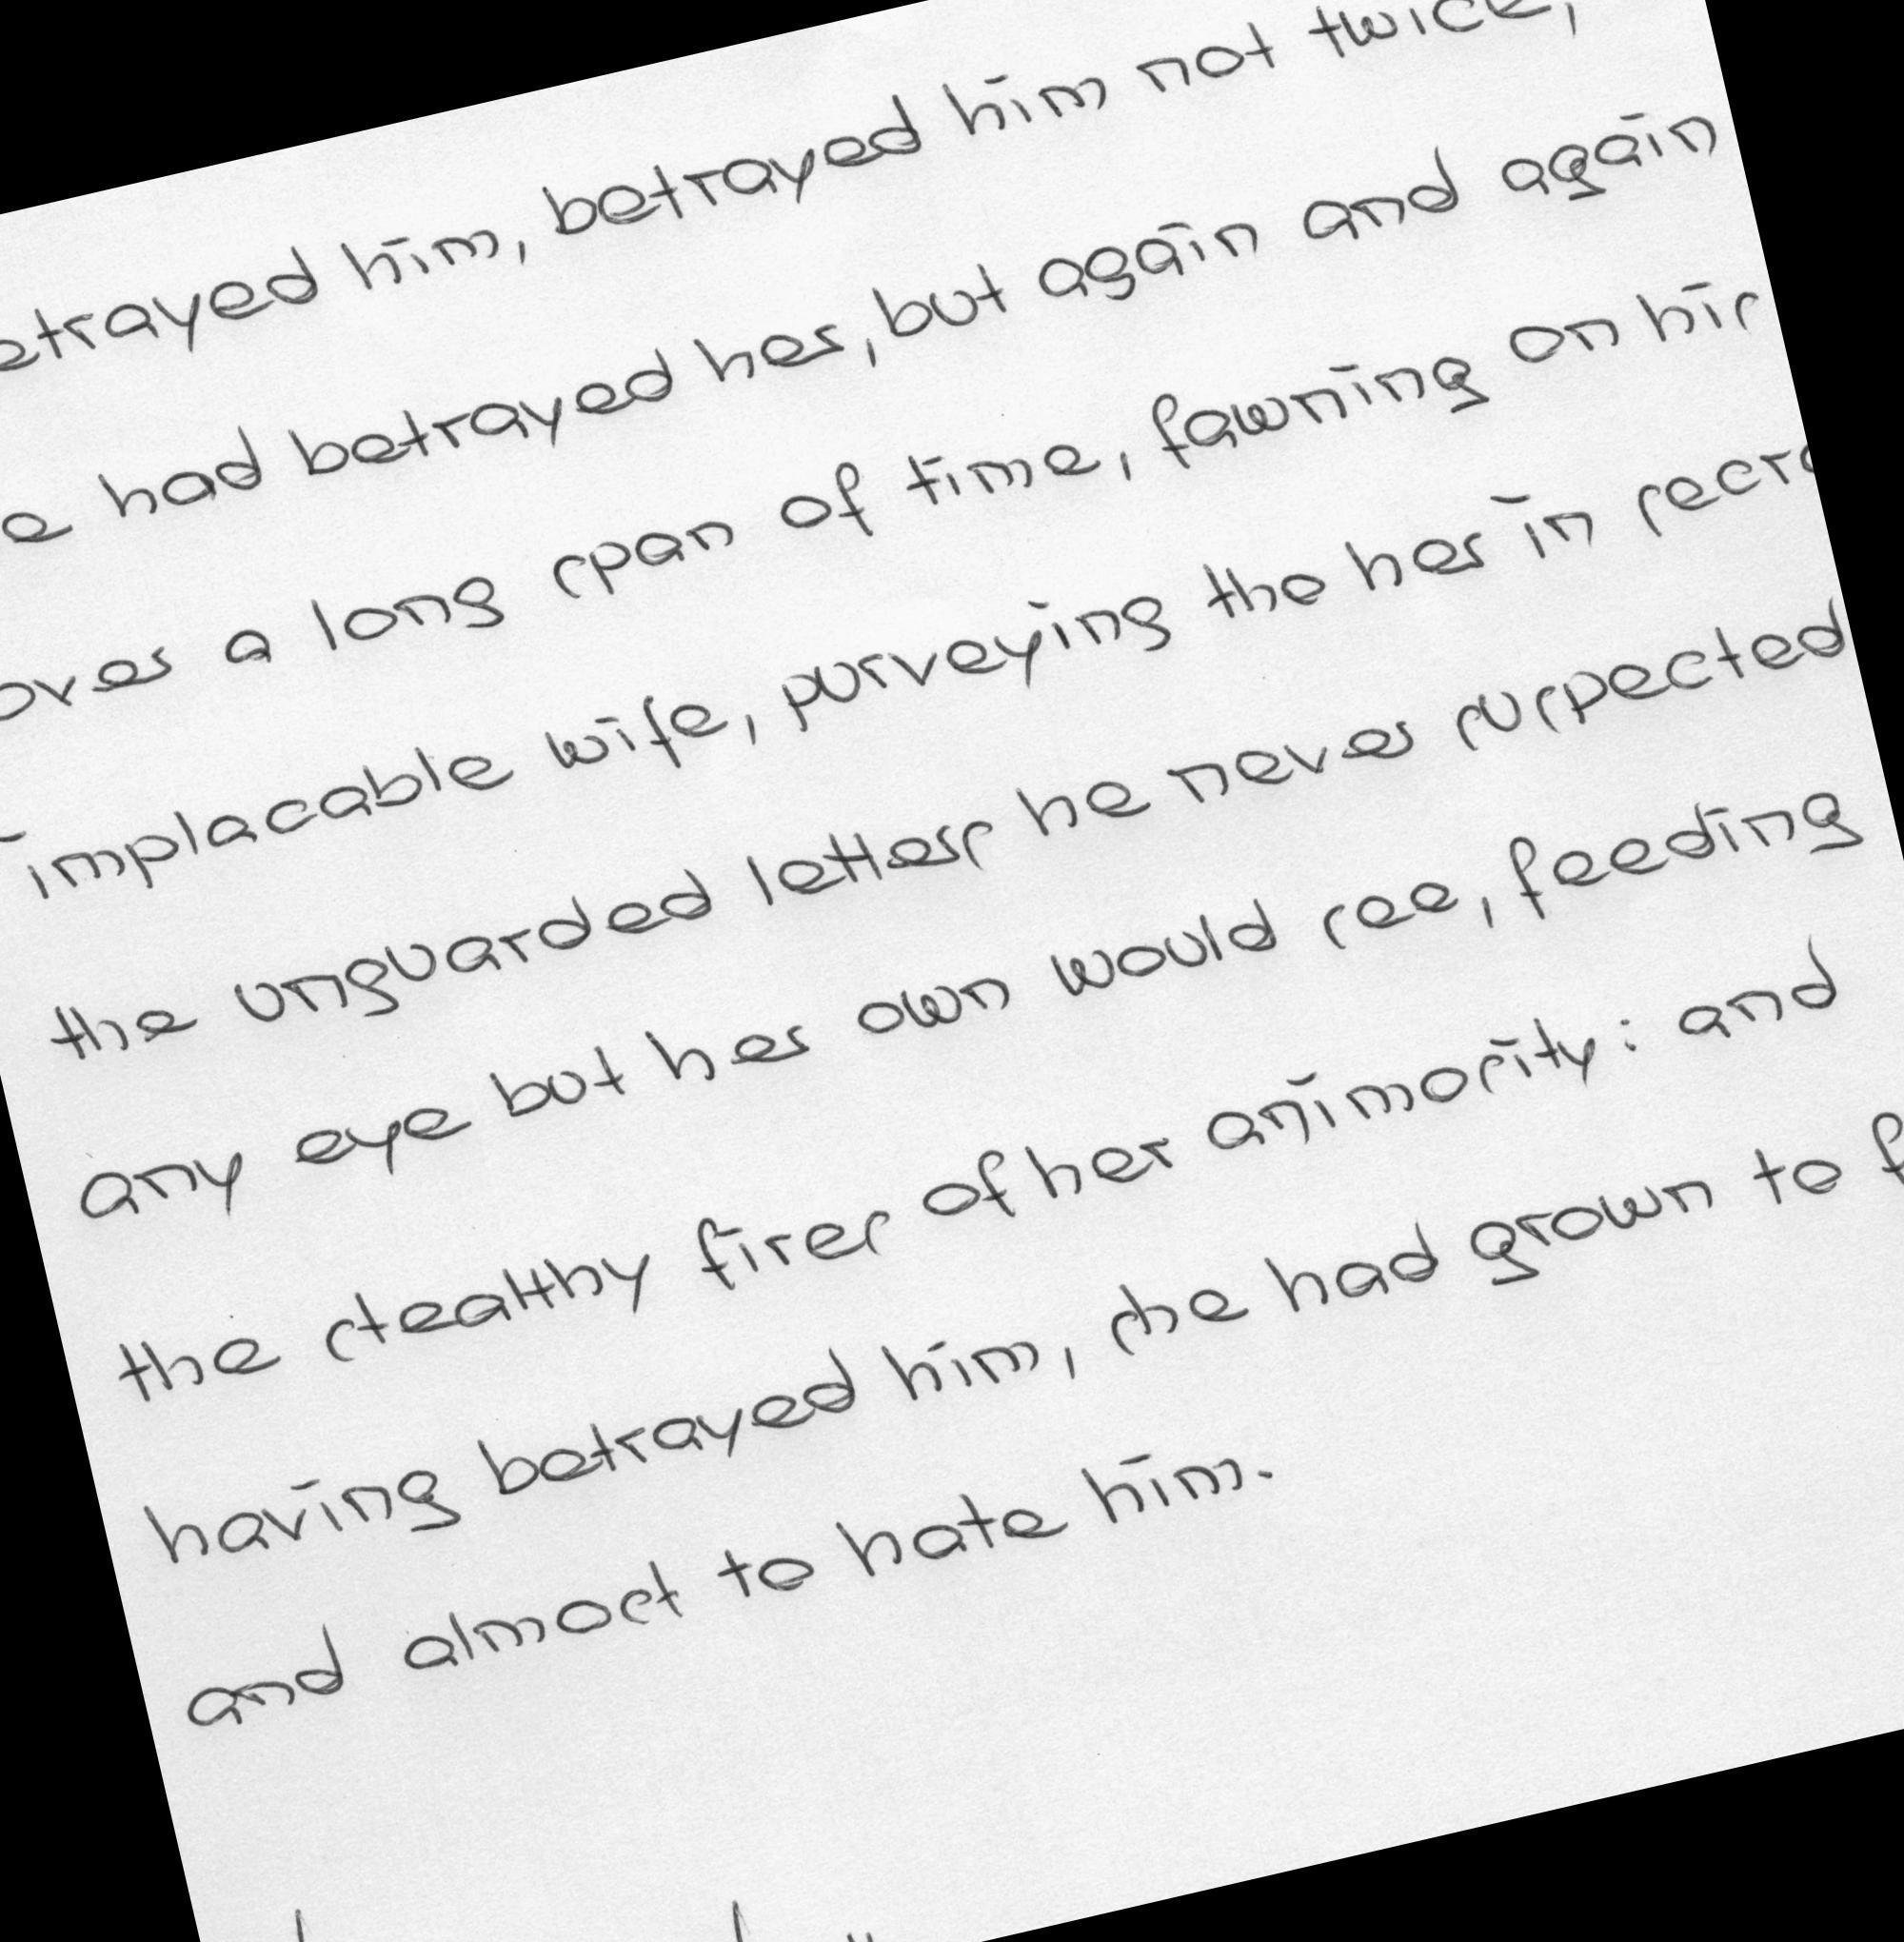 betrayed him, betrayed him not twice,
he had betrayed her, but again and again
over a long span of time, fawning on his
implacable wife, purveying the her in secre
the unguarded letters he never suspected
any eye but her own would see, feeding
the stealthy fires of her animosity: and
having betrayed him, she had grown to f
and almost to hate him.